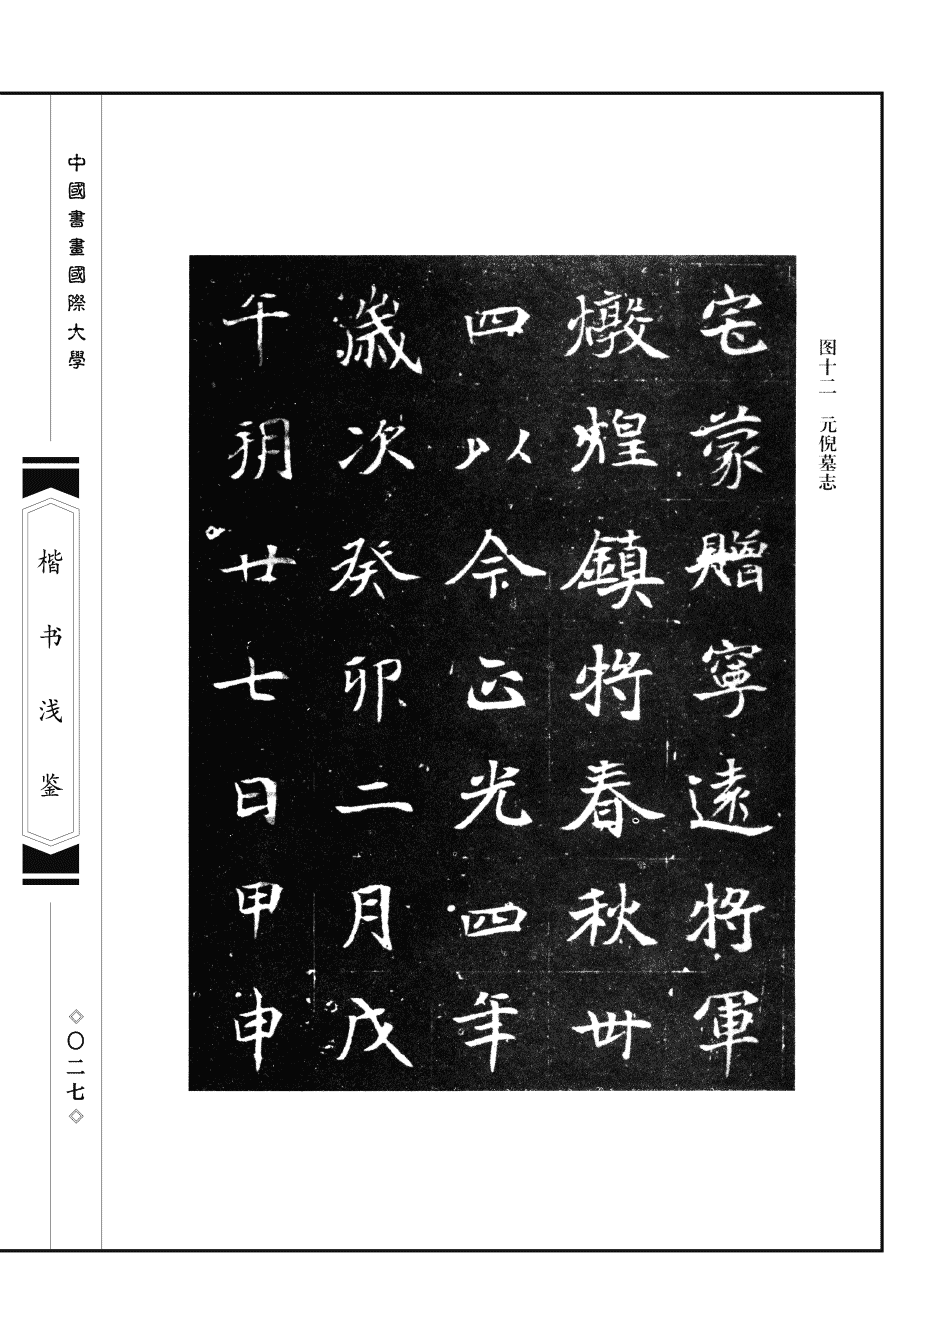 图十二 元倪墓志
宅蒙贈寧遠將軍
燉煌鎮將春秋卌
四以今正光四年
歲次癸卯二月戊
午朔廿七日甲申
中國書畫國際大學
楷书浅鉴
〇二七